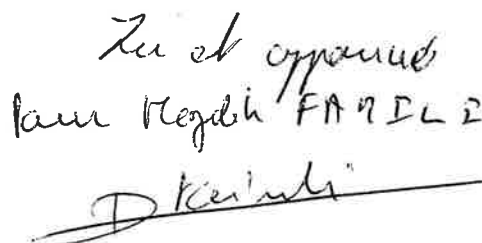 Lu et approuvé
Pour Magdi FAMILI